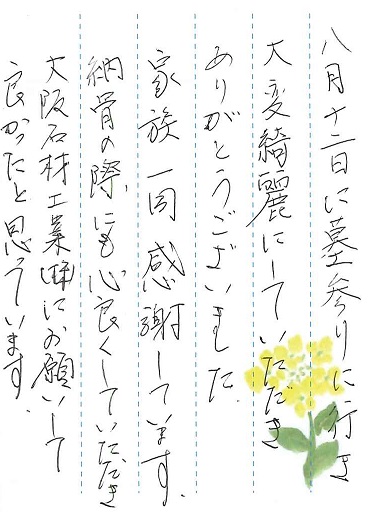 八月十二日に墓参りに行き
大変綺麗にしていただき
ありがとうございました。
家族一同感謝しています。
納骨の際にも心良くしていただき
大阪石材工業(株)にお願いして
良かったと思っています。